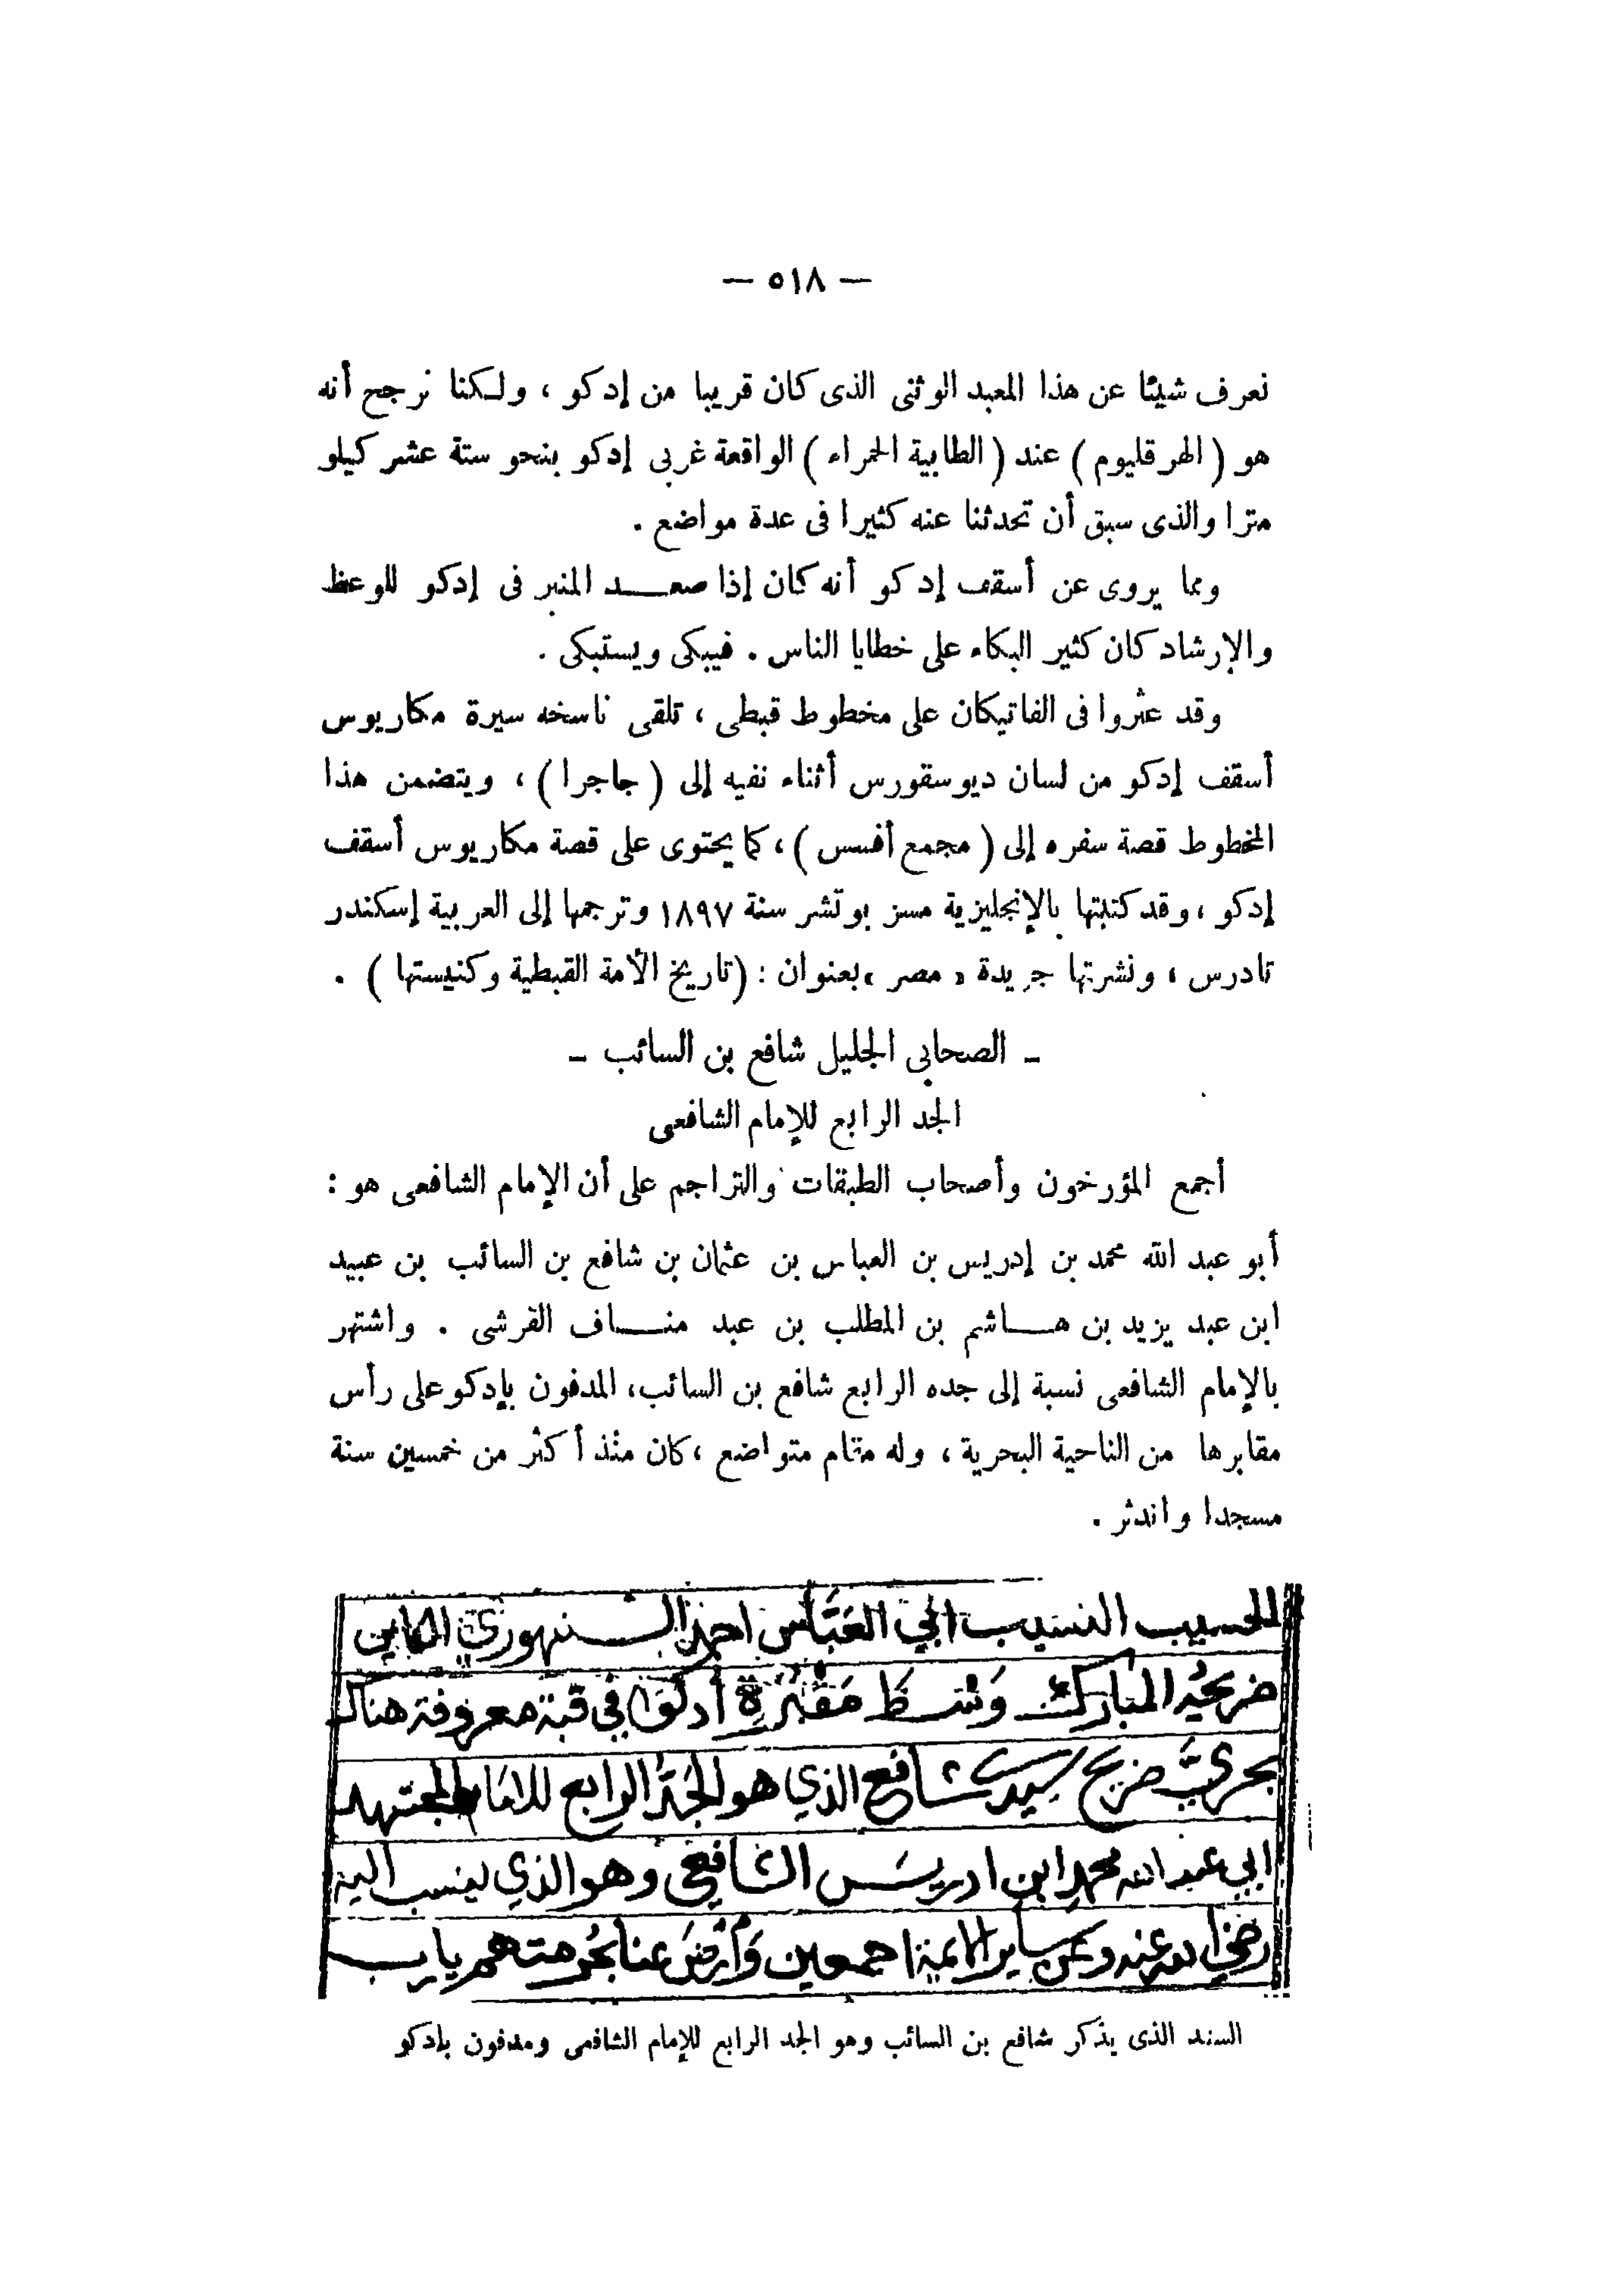 — ٥١٨ —
نعرف شيئا عن هذا المعبد الوثنى الذى كان قريبا من إدكو ، ولكنا نرجح أنه
هو ( الهرقليوم ) عند ( الطابية الحمراء ) الواقعة غربى إدكو بنحو ستة عشر كيلو
مترا والذى سبق أن تحدثنا عنه كثيرا فى عدة مواضع .
ومما يروى عن أسقف إدكو أنه كان إذا صعد المنبر فى إدكو للوعظ
والإرشاد كان كثير البكاء على خطايا الناس . فيبكى ويستبكى .
وقد عثروا فى الفاتيكان على مخطوط قبطى ، تلقى ناسخه سيرة مكاريوس
أسقف إدكو من لسان ديوسقورس أثناء نفيه إلى ( جاجرا ) ، ويتضمن هذا
المخطوط قصة سفره إلى ( مجمع أفسس ) ، كما يحتوى على قصة مكاريوس أسقف
إدكو ، وقد كتبتها بالإنجليزية مسز بوتشر سنة ١٨٩٧ وترجمها إلى العربية إسكندر
تادرس ، ونشرتها جريدة « مصر » بعنوان : (تاريخ الأمة القبطية وكنيستها ) .
ـ الصحابى الجليل شافع بن السائب ـ
الجد الرابع للإمام الشافعى
أجمع المؤرخون وأصحاب الطبقات والتراجم على أن الإمام الشافعى هو :
أبو عبد الله محمد بن إدريس بن العباس بن عثمان بن شافع بن السائب بن عبيد
ابن عبد يزيد بن هاشم بن المطلب بن عبد مناف القرشى . واشتهر
بالإمام الشافعى نسبة إلى جده الرابع شافع بن السائب، المدفون بإدكو على رأس
مقابرها من الناحية البحرية ، وله مقام متواضع ، كان منذ أكثر من خمسين سنة
مسجدا واندثر .
الحسيب النسيب ابي العَبَّاس احمد السنهوري الكاين
ضريحُه المبارك وَسَط مَقْبُرَةِ أدكو في قبة معروفة هناك
بحريّ ضريح سيدي شافع الذي هو الجَدّ الرابع للامام المجتهد
ابي عبد الله محمد ابن ادريس الشافعي وهو الذي ينسب اليه
رضي الله عنه وعن ساير الايمة اجمعين وَأرْضَ عنا بحُرمتهم يارب
السند الذى يذكر شافع بن السائب وهو الجد الرابع للإمام الشافعى ومدفون بإدكو